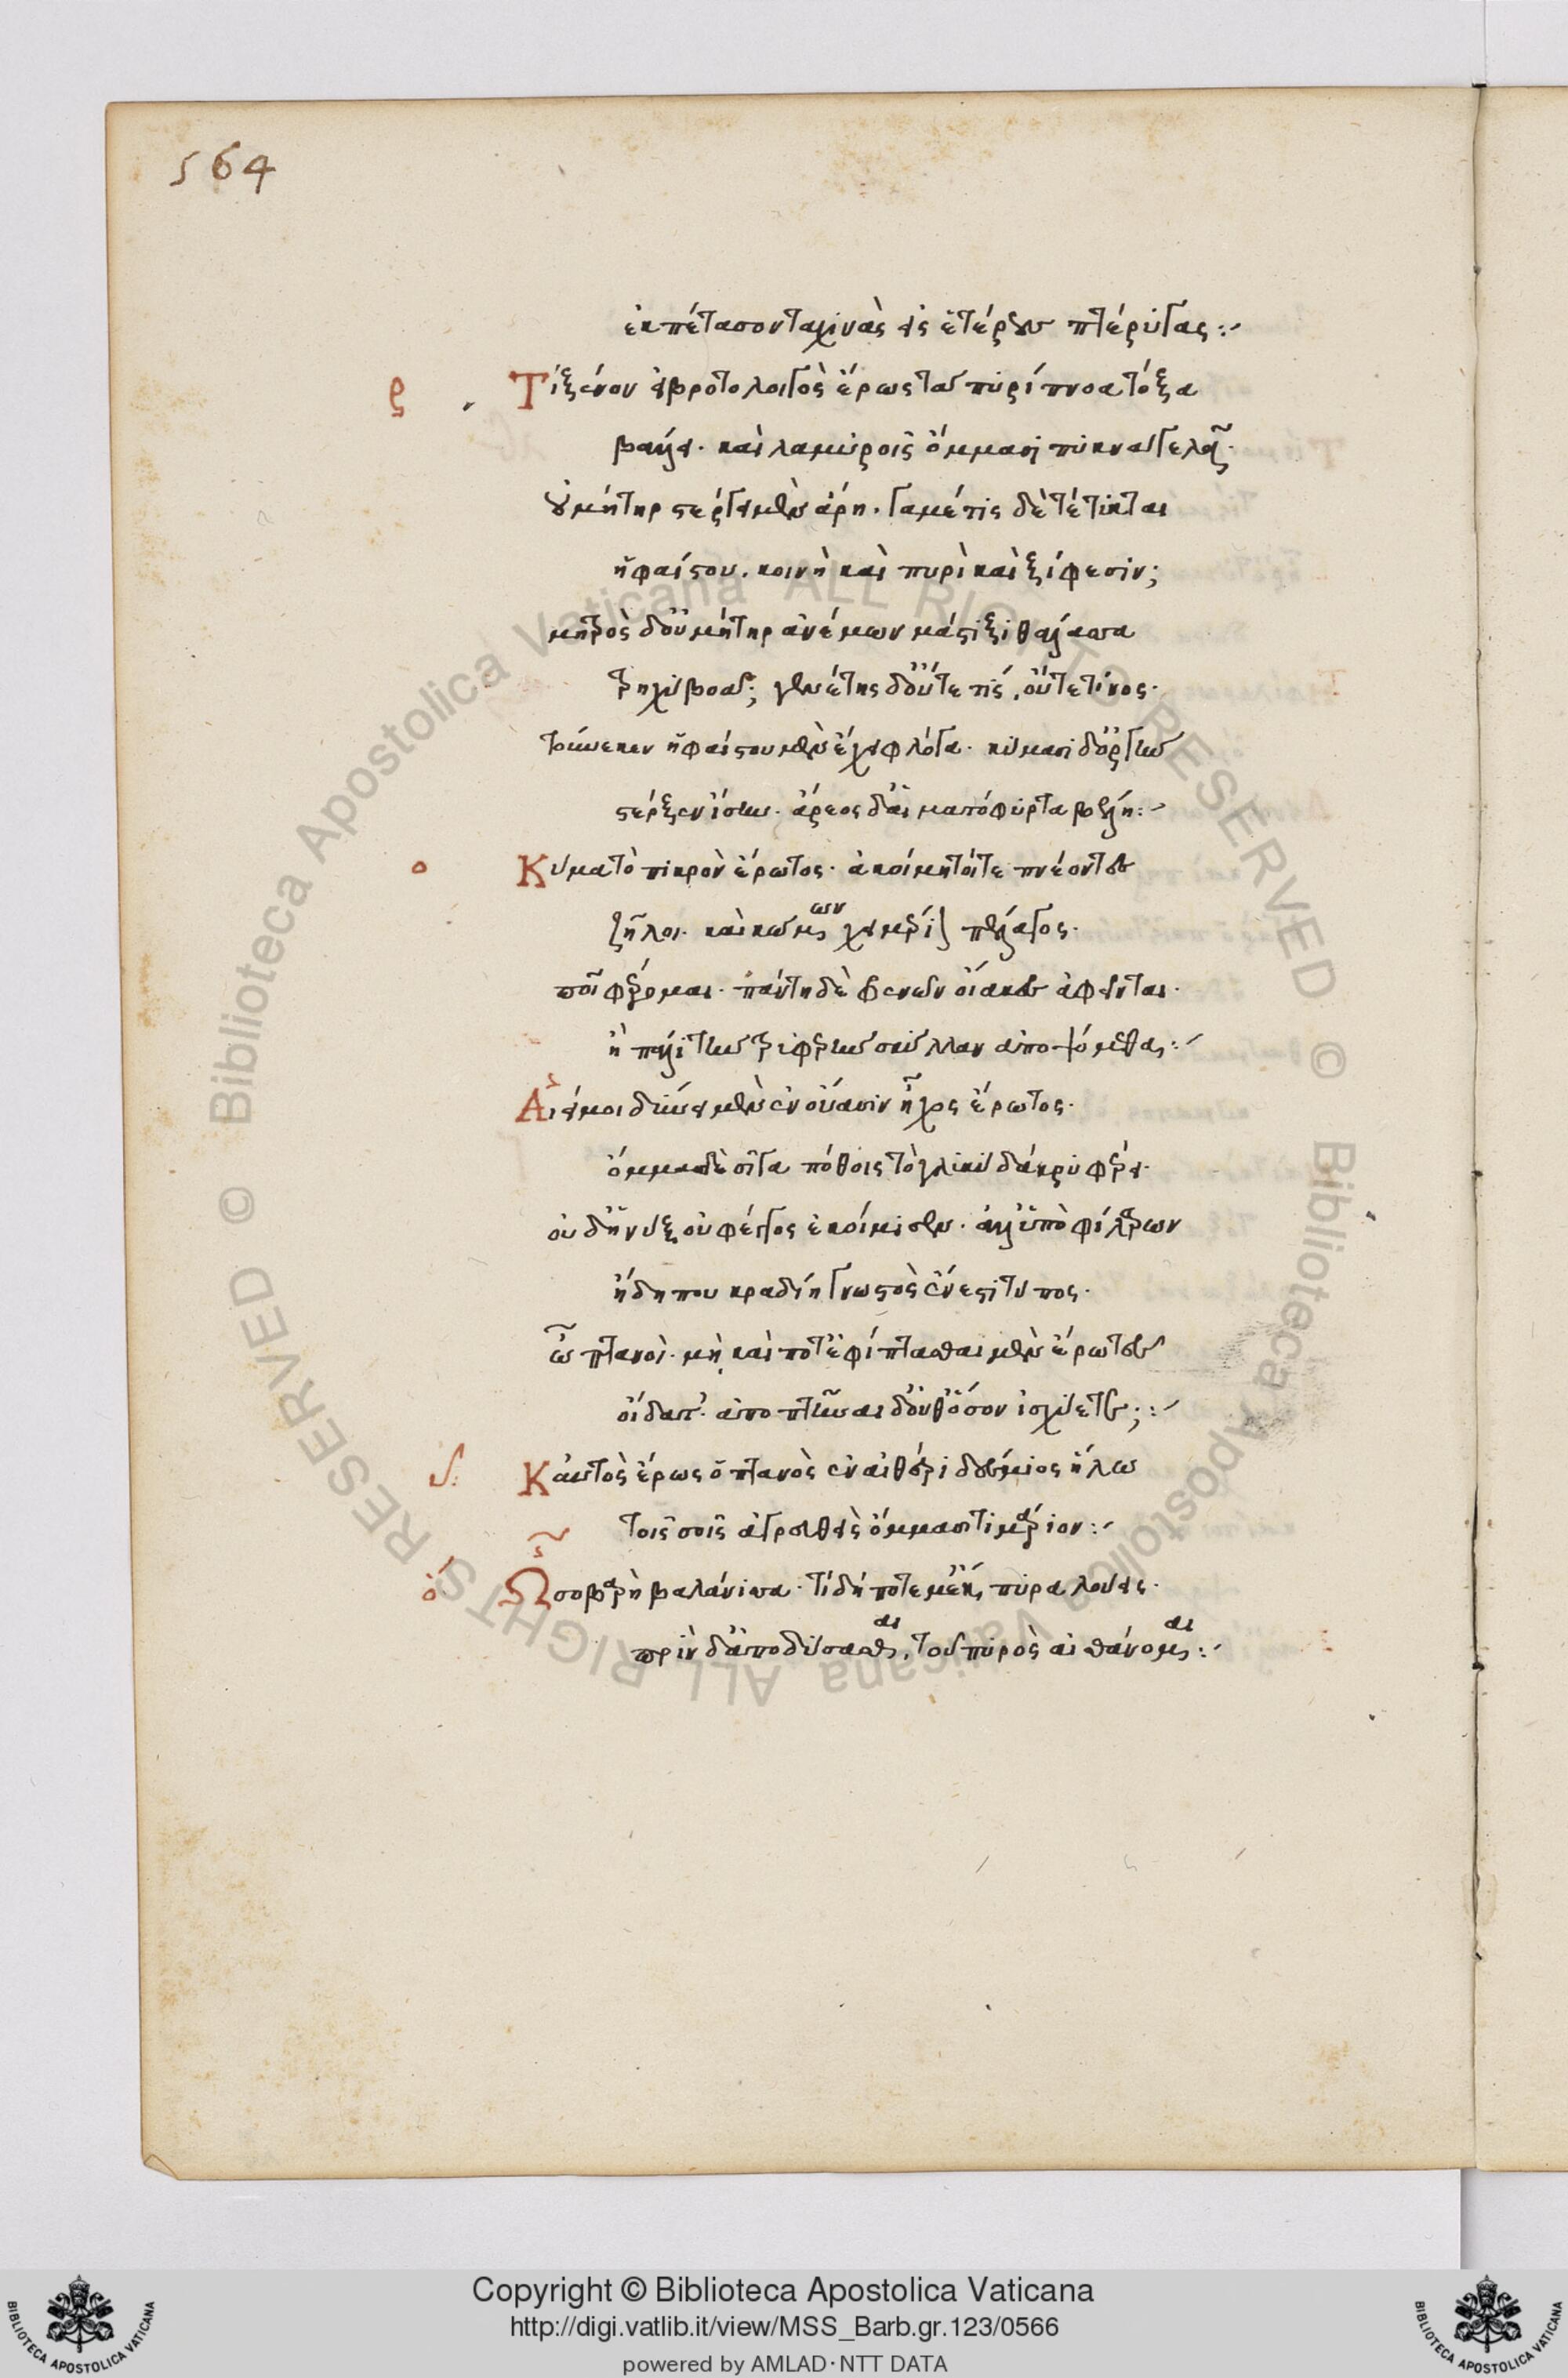 564
ἐκπέτασον ταχινὰς εἰς ἑτέρους πτέρυγας:~
Τί ξένον εἰ βροτολοιγὸς ἔρως τὰ πυρίπνοα τόξα
βάλλει. καὶ λαμυροῖς ὄμμασι πικρὰ γελᾷ.
οὐ μήτηρ στέργει μὲν ἄρη. γαμέτις δὲ τέτυκται
ἡφαίστου. κοινὴ καὶ πυρὶ καὶ ξίφεσιν;
μητρὸς δ' οὐ μήτηρ ἀνέμων μάστιξι θάλασσα
τρηχὺ βοᾷ; γενέτης δ' οὔτε τίς, οὔτε τινος.
τοὔνεκεν ἡφαίστου μὲν ἔχει φλόγα. κύμασι δ' ὀργὴν
στέρξεν ἴσην. ἄρεος δ' αἱματόφυρτα βέλη:~
Κῦμα τὸ πικρὸν ἔρωτος. ἀκοίμητοί τε πνέοντες
ζῆλοι. καὶ κώμων χειμέριον πέλαγος.
ποῖ φέρομαι. πάντη δὲ φρενῶν οἴακες ἀφεῖνται.
ἦ πάλι τὴν τρυφερὴν σκύλλαν ἀποψόμεθα:~
Αἰεί μοι δινεῖ μὲν ἐν οὔασιν ἦχος ἔρωτος.
ὄμμα δὲ σῖγα πόθοις τὸ γλυκὺ δάκρυ φέρει.
οὐδ' ἡ νὺξ οὐ φέγγος ἐκοίμισεν. ἀλλ' ὑπὸ φίλτρων
ἤδη που κραδίη γνωστὸς ἔνεστι τύπος.
ὦ πτανοὶ. μὴ καί ποτ' ἐφίπτασθαι μὲν ἔρωτες
οἴδατ'. ἀποπτῆναι δ' οὐθ' ὅσον ἰσχύετε;:~
Καὐτὸς ἔρως ὁ πτανὸς ἐν αἰθέρι δέσμιος ἥλω
τοῖς σοῖς ἀγρευθεὶς ὄμμασι τιμάριον:~
Ὦ σοβαρὴ βαλάνισσα. τί δή ποτέ μ' ἔκπυρα λούεις.
πρίν δ' ἀποδύσασθαι, τοῦ πυρὸς αἰσθάνομαι:~
Copyright © Biblioteca Apostolica Vaticana
http://digi.vatlib.it/view/MSS_Barb.gr.123/0566
powered by AMLAD·NTT DATA